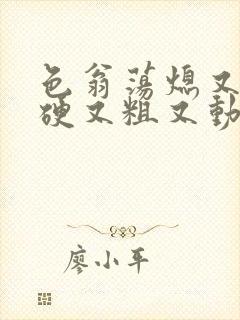 色翁荡熄又
硬又粗又動
廖小平